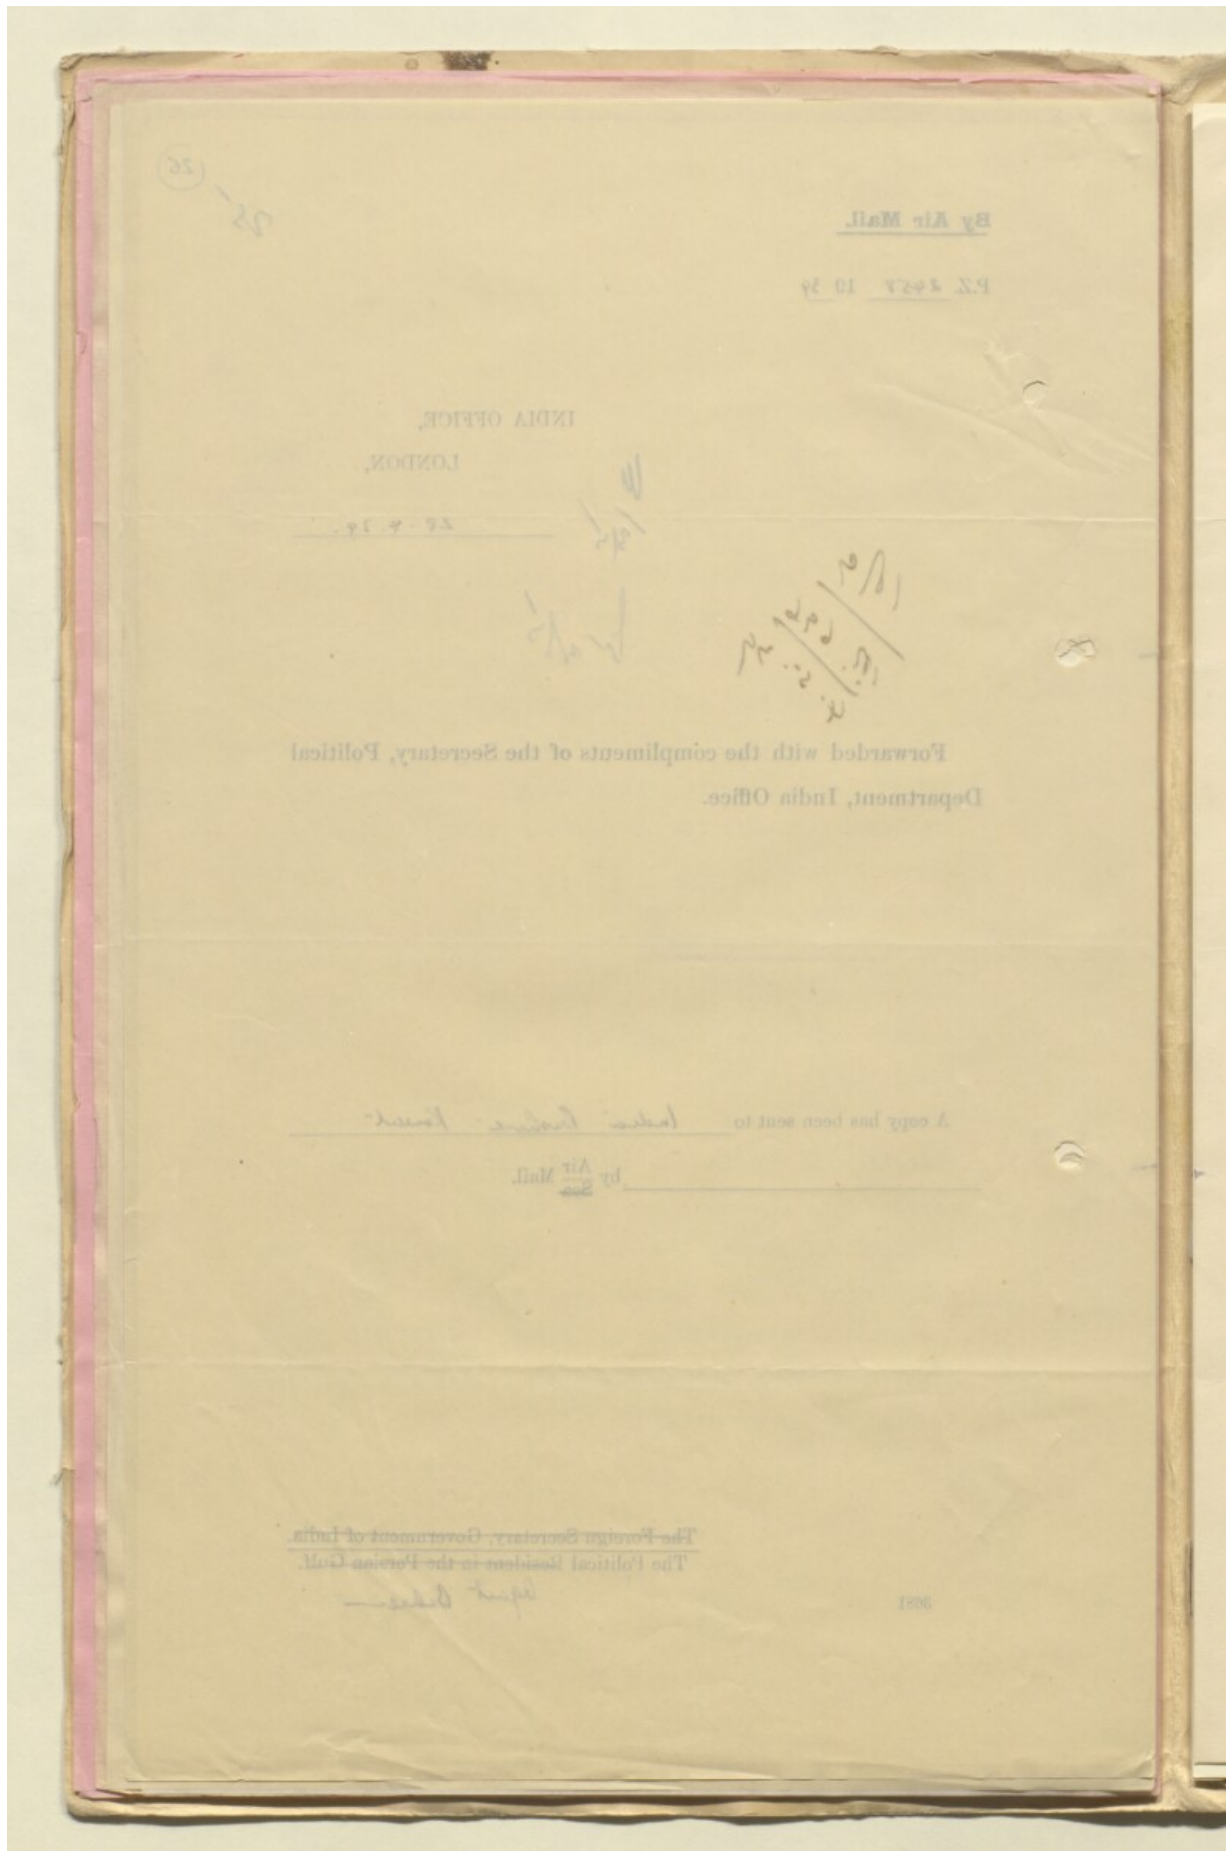 26
25
By Air Mail.
P.Z. 2458 19 34
INDIA OFFICE,
LONDON,
28.4.34.
Forwarded with the compliments of the Secretary, Political
Department, India Office.
A copy has been sent to India
by Air Mail.
Sea
The Foreign Secretary, Government of India.
The Political Resident in the Persian Gulf.
Agent
3681